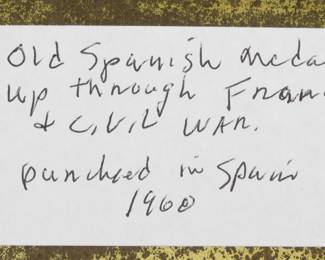 Old Spanish meda
up through Fran
& CIVIL WAR.
purchased in Spain
1960